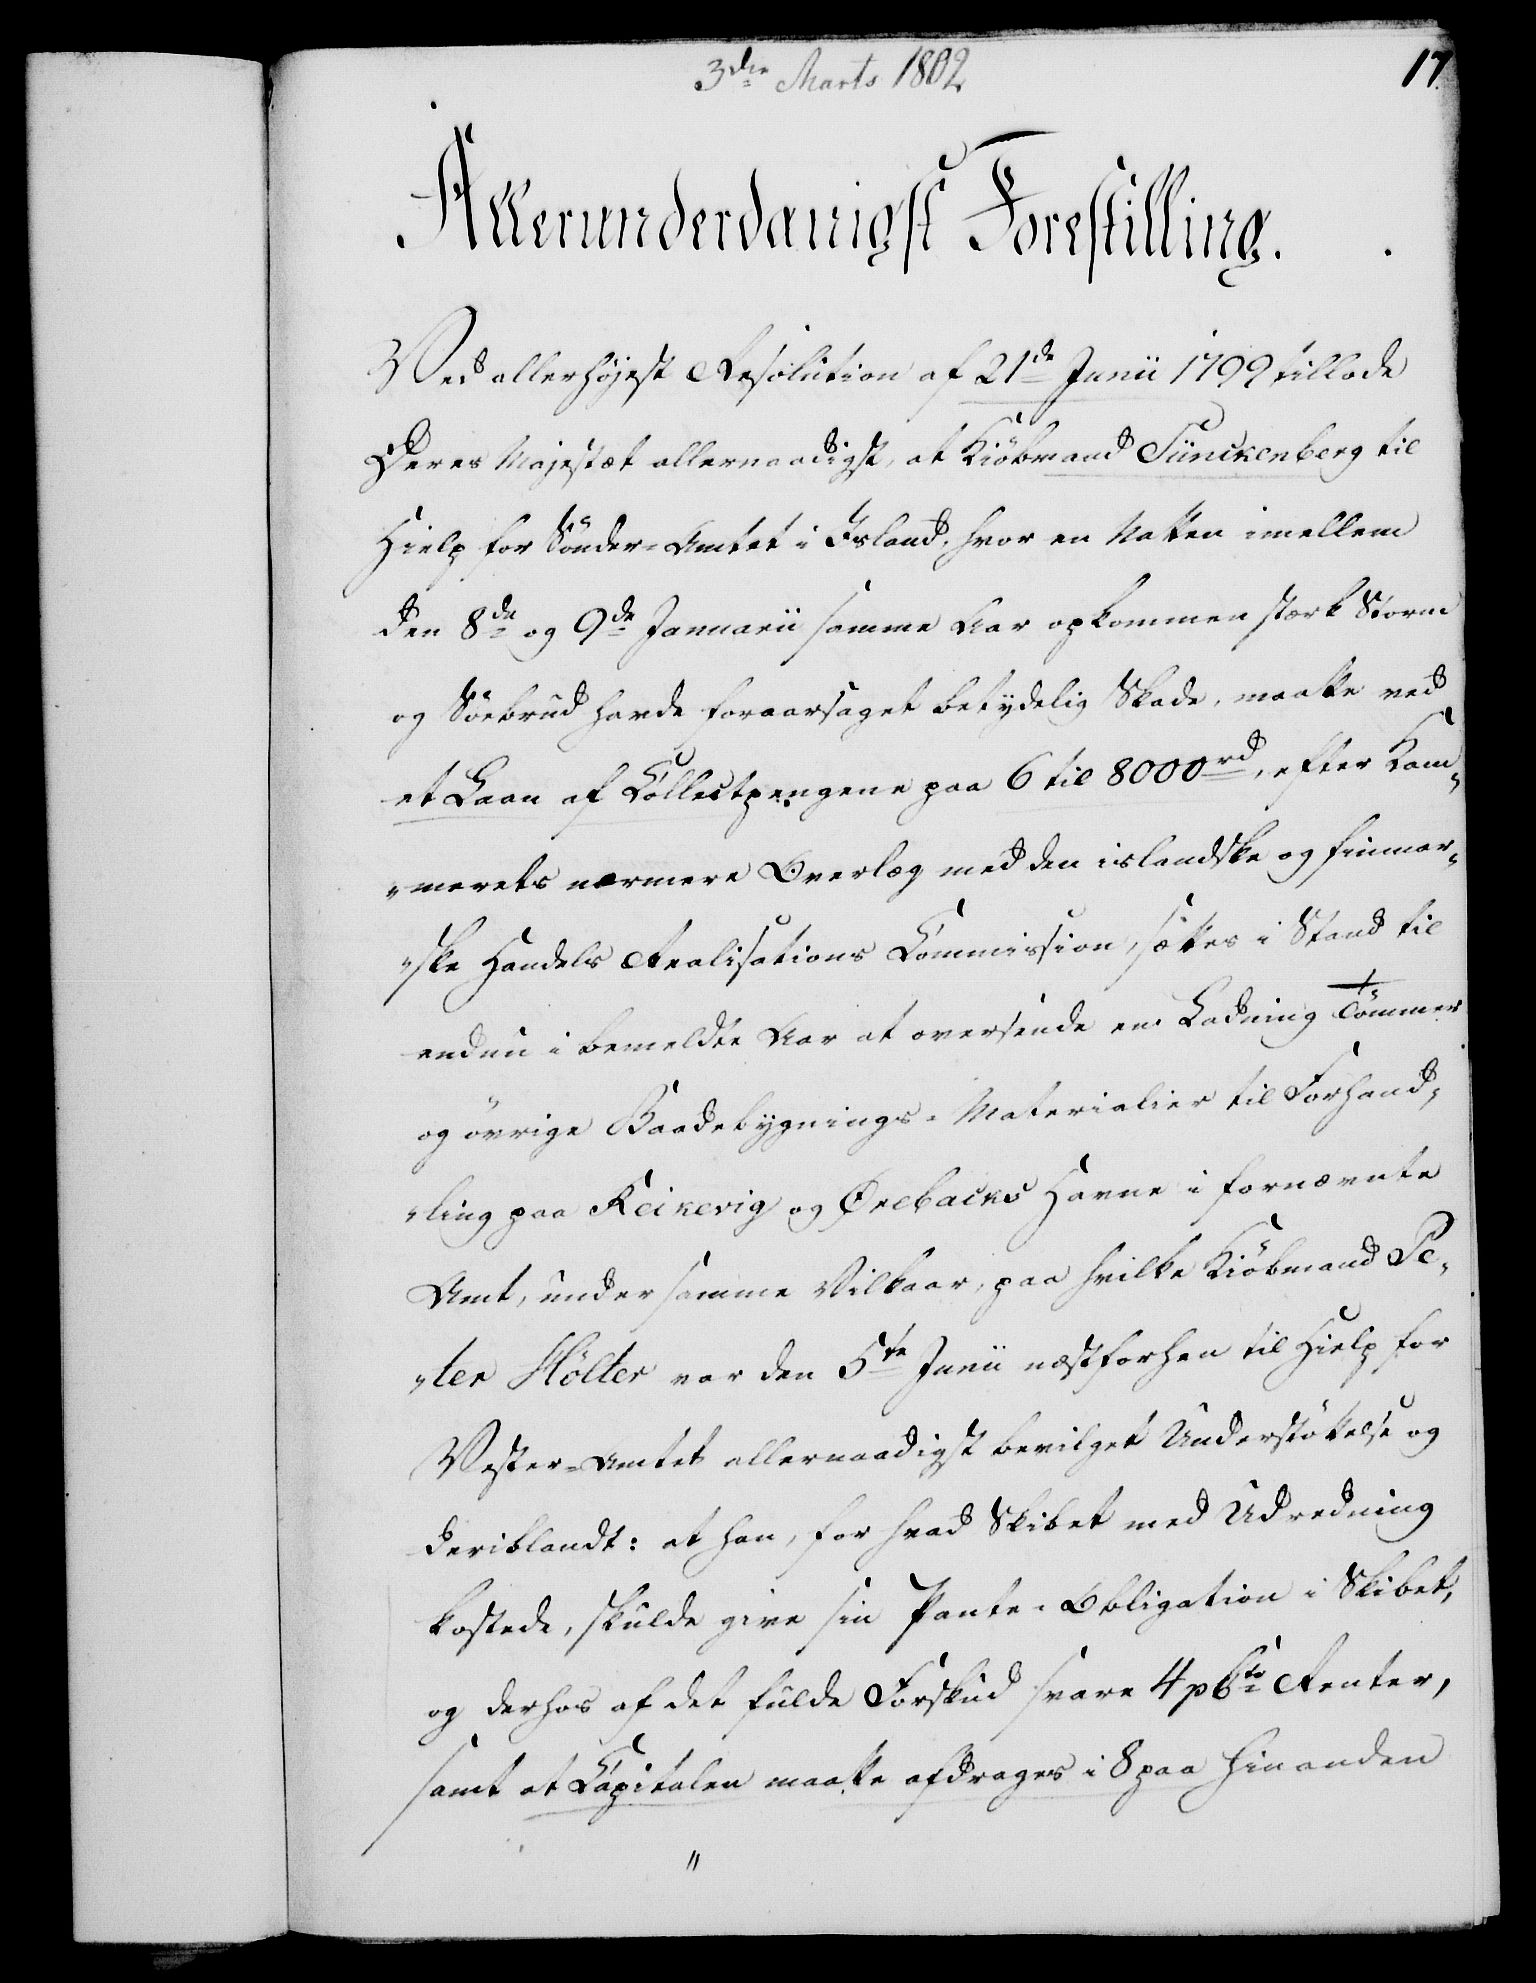 3die Marts 1802
17.
Allerunderdanigst Forestilling.
Ved allerhöjest Resolution af 21de Junii 1799 tillode
Deres Majestæt allernaadigst, at Kiöbmand Sünckenberg til
Hielp for Sönder-Amtet i Island, hvor en Natten imellem
den 8de og 9de Januarii samme Aar opkommen stærk Storm
og Söebrud havde foraarsaget betydelig Skade, maatte ved
et Laan af Collectpengene paa 6 til 8000rd, efter Kam„
„merets nærmere Overlæg med den islandske og finmar„
„ske Handels Realisations Commission, sættes i Stand til
endnu i bemeldte Aar at oversende en Ladning Tömmer
og övrige Baadebygnings-Materialier til Forhand„
„ling paa Reikevig og Örebacks Havne i fornævnte
Amt, under samme Vilkaar, paa hvilke Kiöbmand Pe„
„ter Hölter var den 5te Junii næstforhen til Hielp for
Vester-Amtet allernaadigst bevilget Understöttelse og
deriblandt: at han, for hvad Skibet med Udredning
kostede, skulde give sin Pante-Obligation i Skibet,
og derhos af det fulde Forskud svare 4 pCto Renter,
samt at Capitalen maatte afdrages i 8 paa hinanden
"